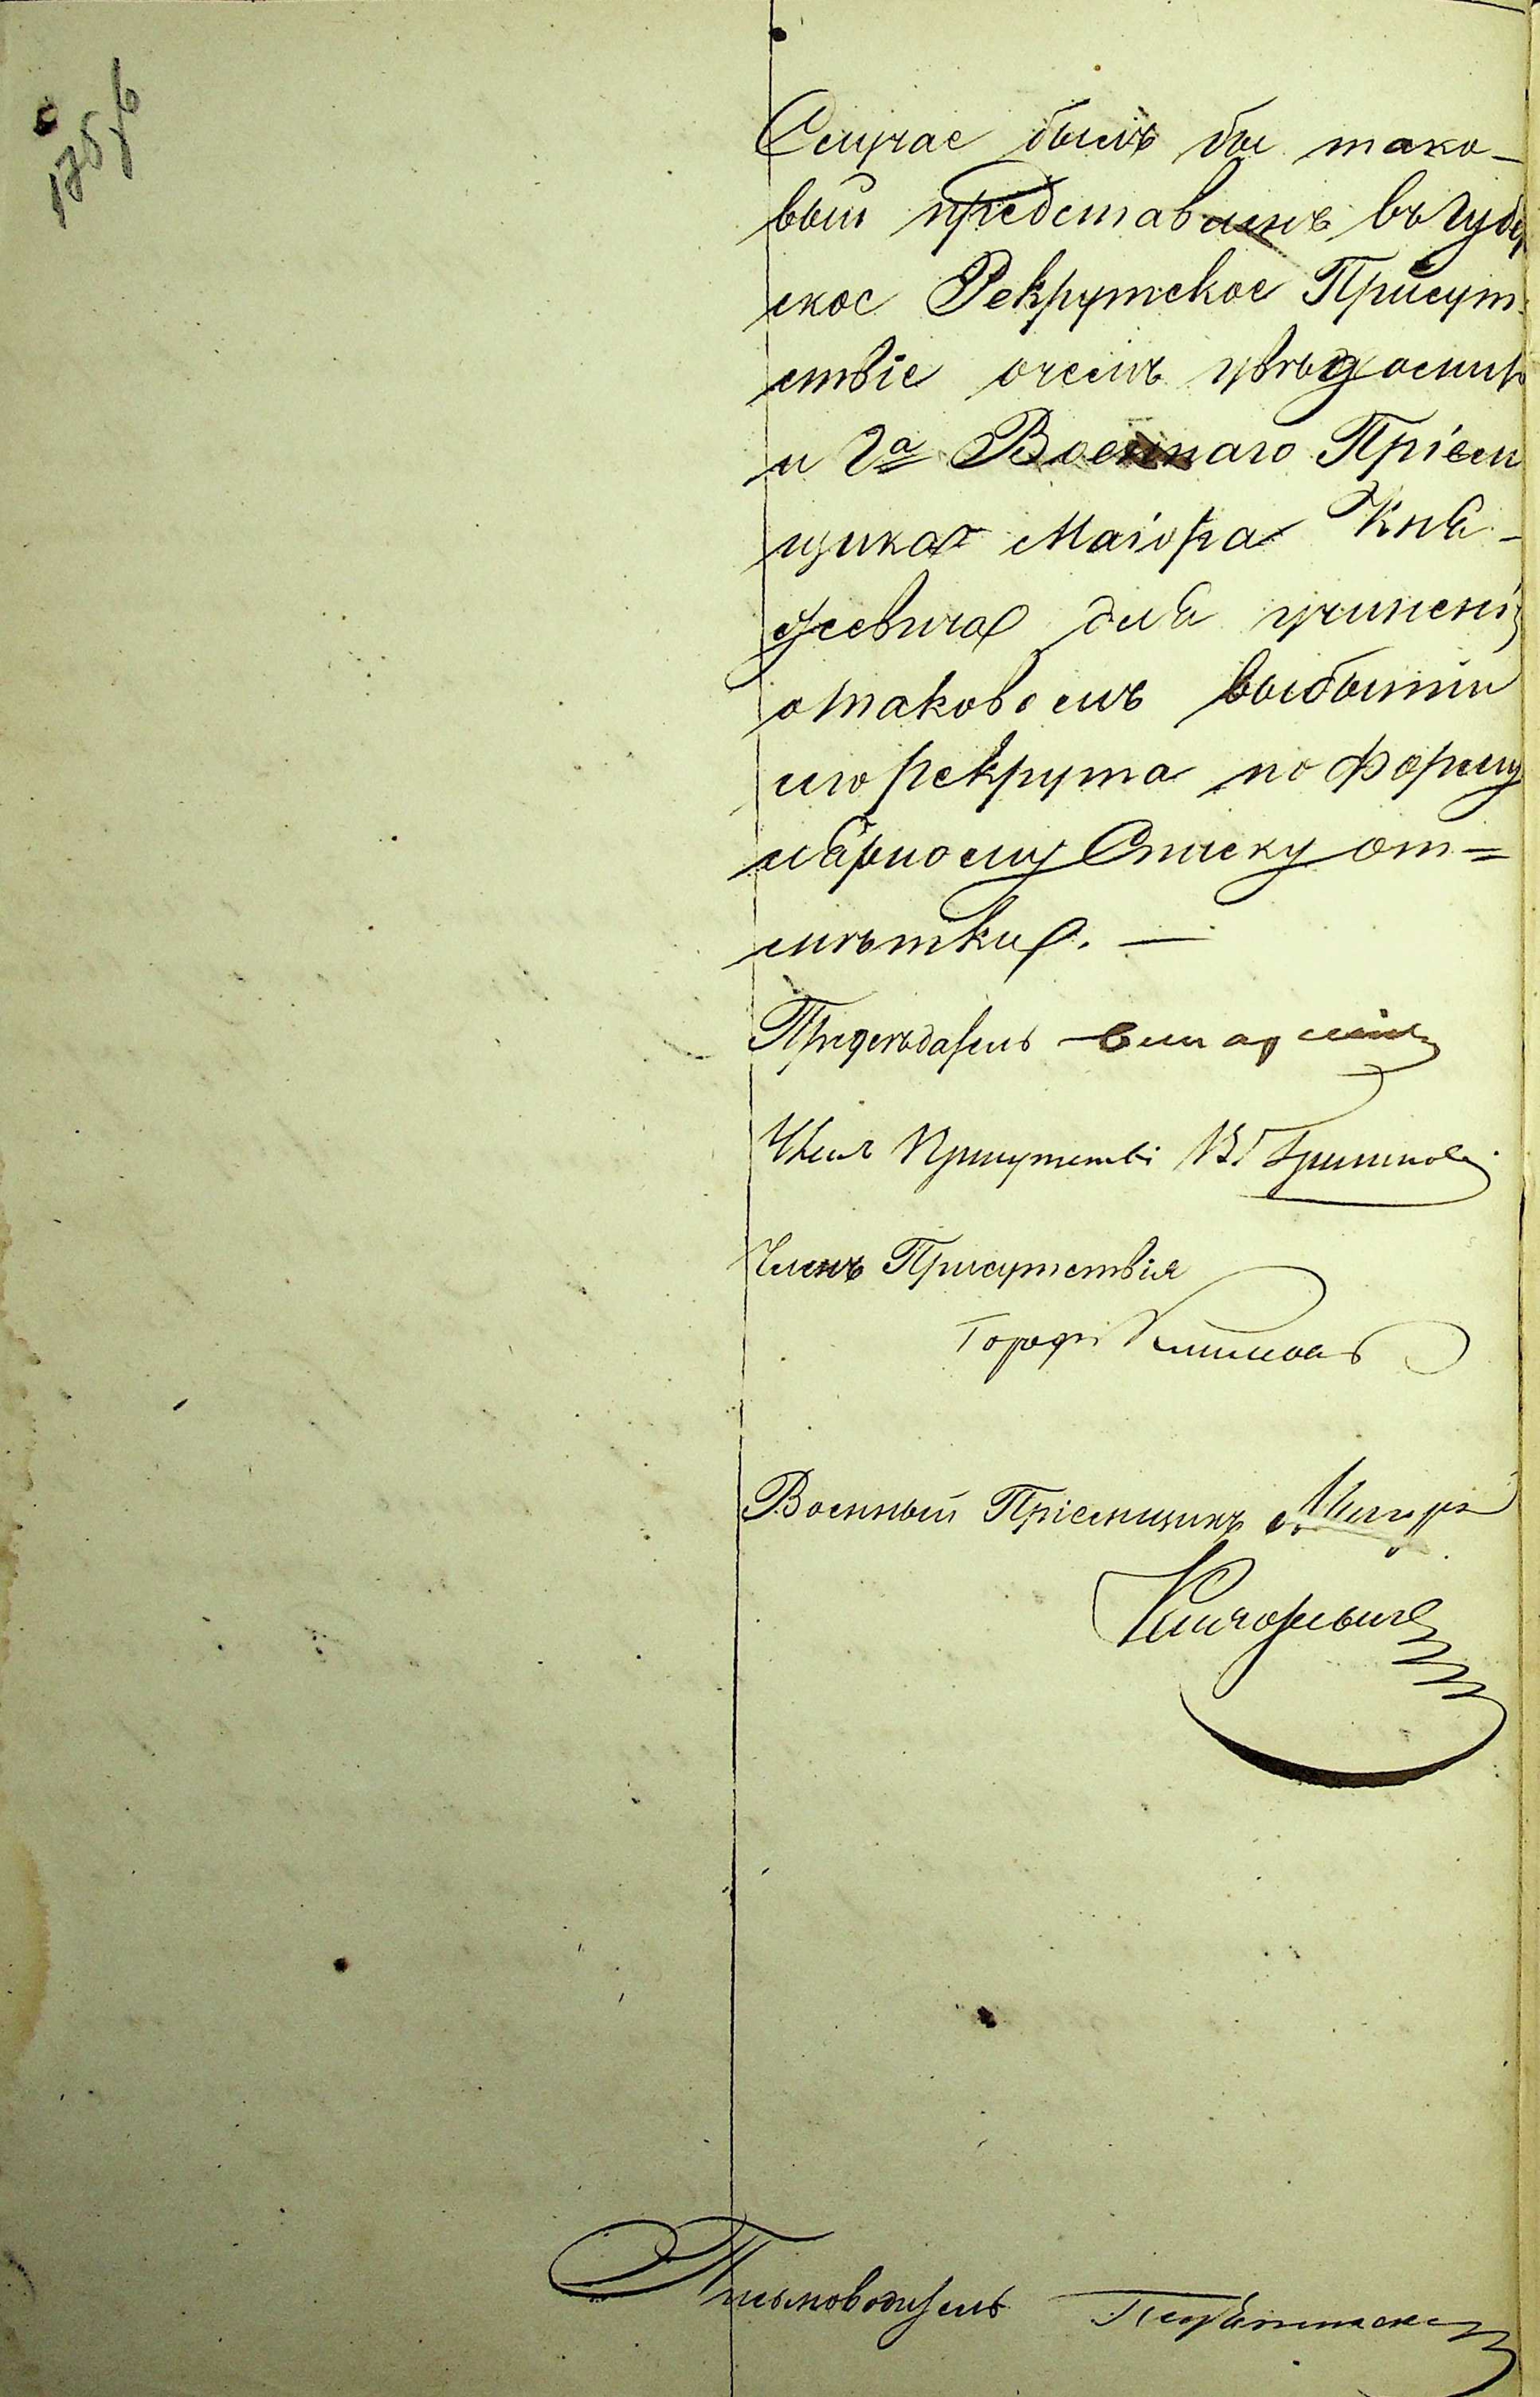 Случае былъ бы тако-
вый представленъ въ Губер
ское Рекрутское Присут
ствіе очемъ увѣдомить
и Га Военнаго Пріем
щика Маіора Кня-
жевича для учиненія
отаковомъ выбытіи
его рекрута по Форму
лярному Списку от=
мѣтки. —
Предсѣдатель
Членъ Присутстві
Членъ Присутствія
Военный Пріемщикъ Маіоръ
Княжевичъ
Письмоводитель